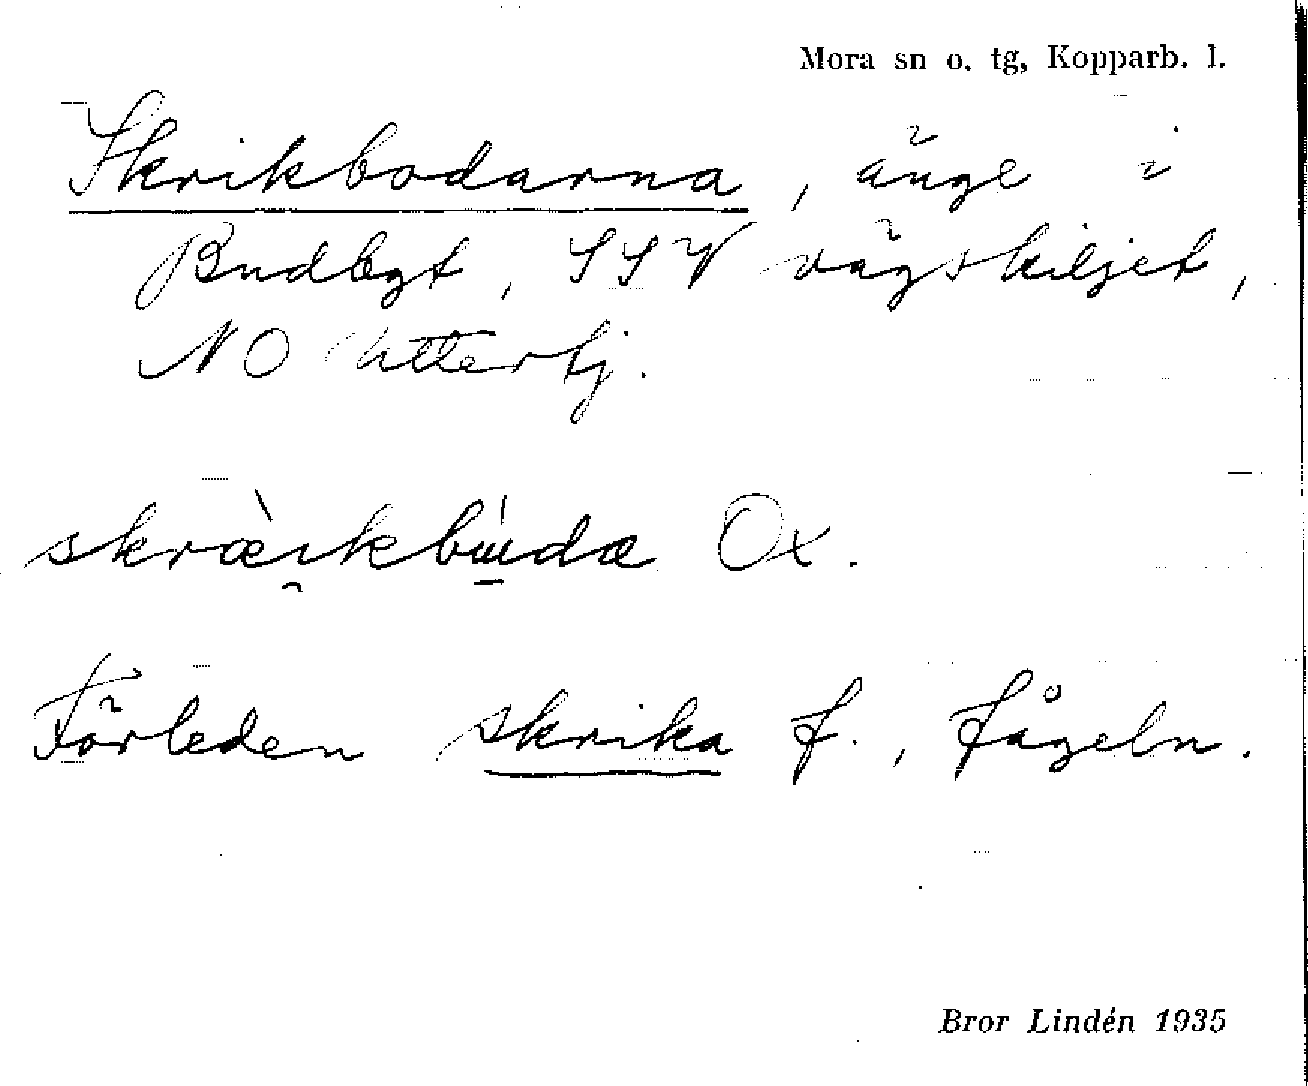 Mora sn o. tg, Kopparb. l.
Skrikbodarna, änge i
Budbgt, SSV vägskiljet,
NO Utterbj.
skræ̀ikbúda Ox.
Förleden skrika f., fågeln.
Bror Lindén 1935